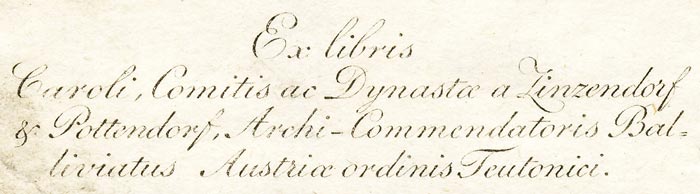 Ex libris
Caroli, Comitis ac Dynastæ a Zinzendorf
& Pottendorf, Archi-Commendatoris Bal-
liviatus Austriæ ordinis Teutonici.